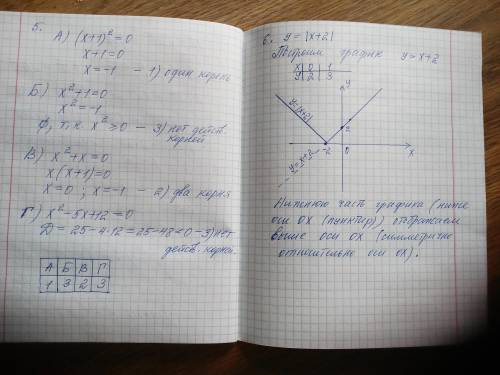 5.
А) (x+1)² = 0
x+1=0
x=-1 - 1) один корень
Б) x²+1=0
x²=-1
∅, т.к. x²≥0 - 3) нет действ.
корней
В) x²+x=0
x(x+1)=0
x=0; x=-1 - 2) два корня
Г) x²-5x+12=0
Д = 25-4·12=25-48<0 - 3) нет
действ. корней.
А Б В Г
1 3 2 3
6. y=|x+2|
Построим график y=x+2
x 0 1
y 2 3
y
y=|x+2|
2
-2 0 x
y=x+2
Нижнюю часть графика (ниже
оси OX (пунктир)) отображаем
выше оси OX (симметрично
относительно оси OX).